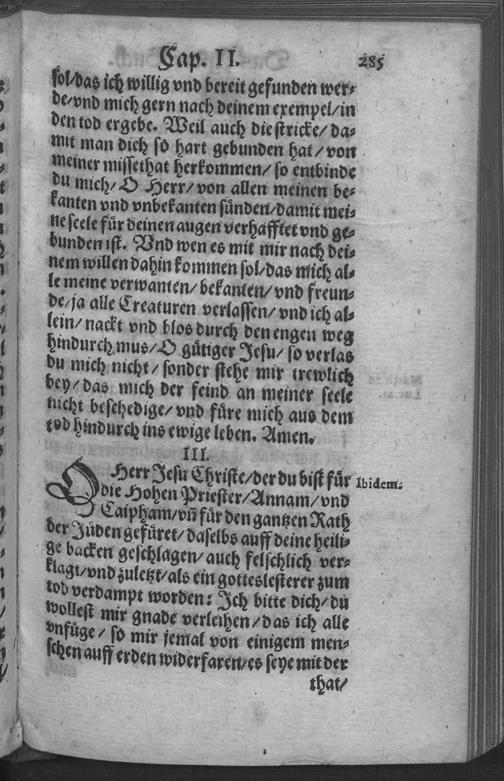 Cap. II. 285
sol/das ich willig vnd bereit gefunden wer-
de/vnd mich gern nach deinem exempel/in
den tod ergebe. Weil auch die stricke/ da-
mit man dich so hart gebunden hat/ von
meiner missethat herkommen/ so entbinde
du mich/ O Herr/ von allen meinen be-
kanten vnd vnbekanten sünden/damit mei-
ne seele für deinen augen verhafftet vnd ge-
bunden ist. Vnd wen es mit mir nach dei-
nem willen dahin kommen sol/das mich al-
le meine verwanten/ bekanten/ vnd freun-
de/ja alle Creaturen verlassen/ vnd ich al-
lein/ nackt vnd blos durch den engen weg
hindurch mus/ O gütiger Jesu/ so verlas
du mich nicht/ sonder stehe mir trewlich
bey/ das mich der feind an meiner seele
nicht beschedige/ vnd füre mich aus dem
tod hindurch ins ewige leben. Amen.
III.
O Herr Jesu Christe/der du bist für Ibidem.
die Hohen Priester/Annam/ vnd
Caipham/vñ für den gantzen Rath
der Jüden gefüret/daselbs auff deine heili-
ge backen geschlagen/ auch felschlich ver-
klagt/vnd zuletzt/als ein gotteslesterer zum
tod verdampt worden: Ich bitte dich/ du
wollest mir gnade verleihen/ das ich alle
vnfüge/ so mir jemal von einigem men-
schen auff erden widerfaren/es seye mit der
that/